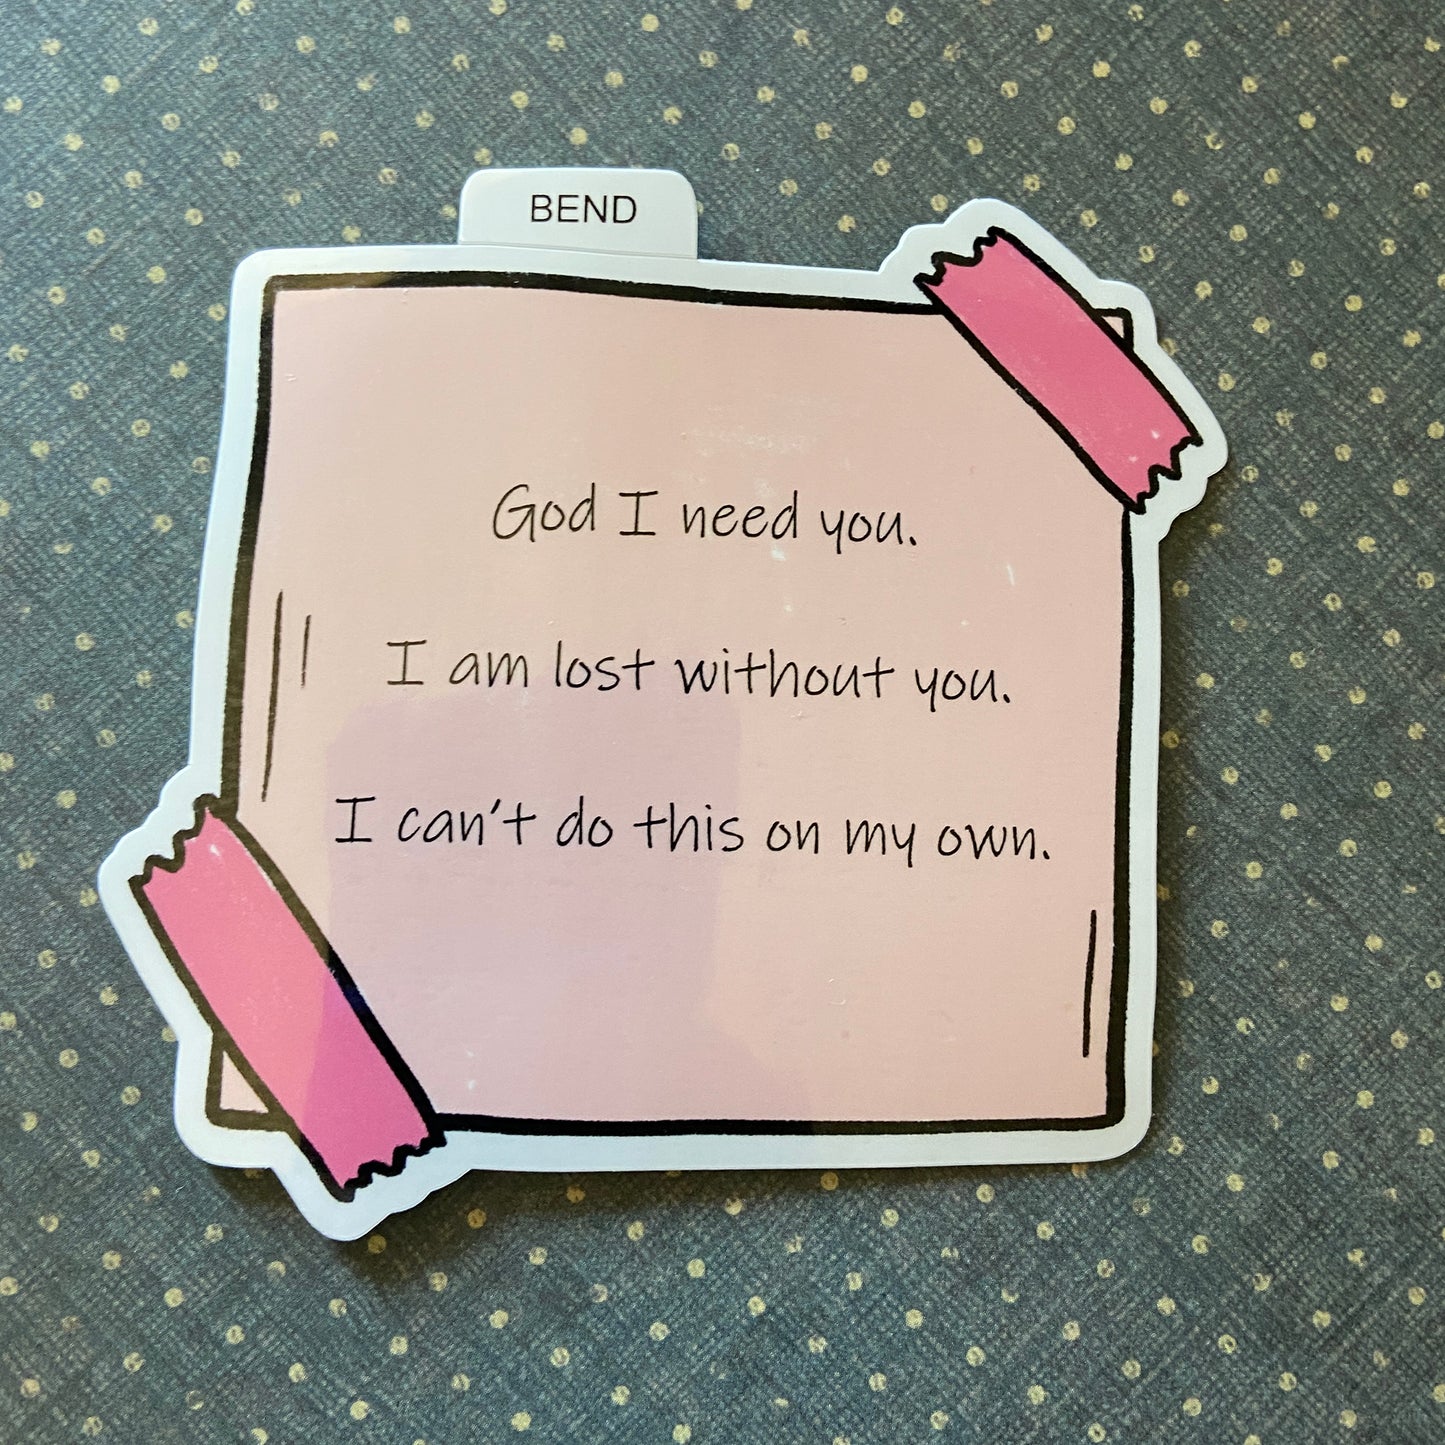 BEND
God I need you.
I am lost without you.
I can't do this on my own.